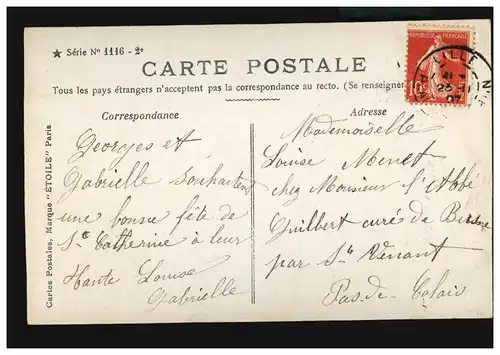 ★ Série Nº 1116 - 2º
CARTE POSTALE
Tous les pays étrangers n'acceptent pas la correspondance au recto. (Se renseigner
Correspondance
Adresse
Georges et
Gabrielle souhaitent
une bonne fête de
Ste Catherine à leur
Tante Louise
Gabrielle
Mademoiselle
Louise Menet
chez Monsieur l'Abbé
Guilbert curé de
par St Venant
Pas-de-Calais
Cartes Postales, Marque "ÉTOILE" Paris
REPUBLIQUE FRANCAISE
LILLE
25 11
07